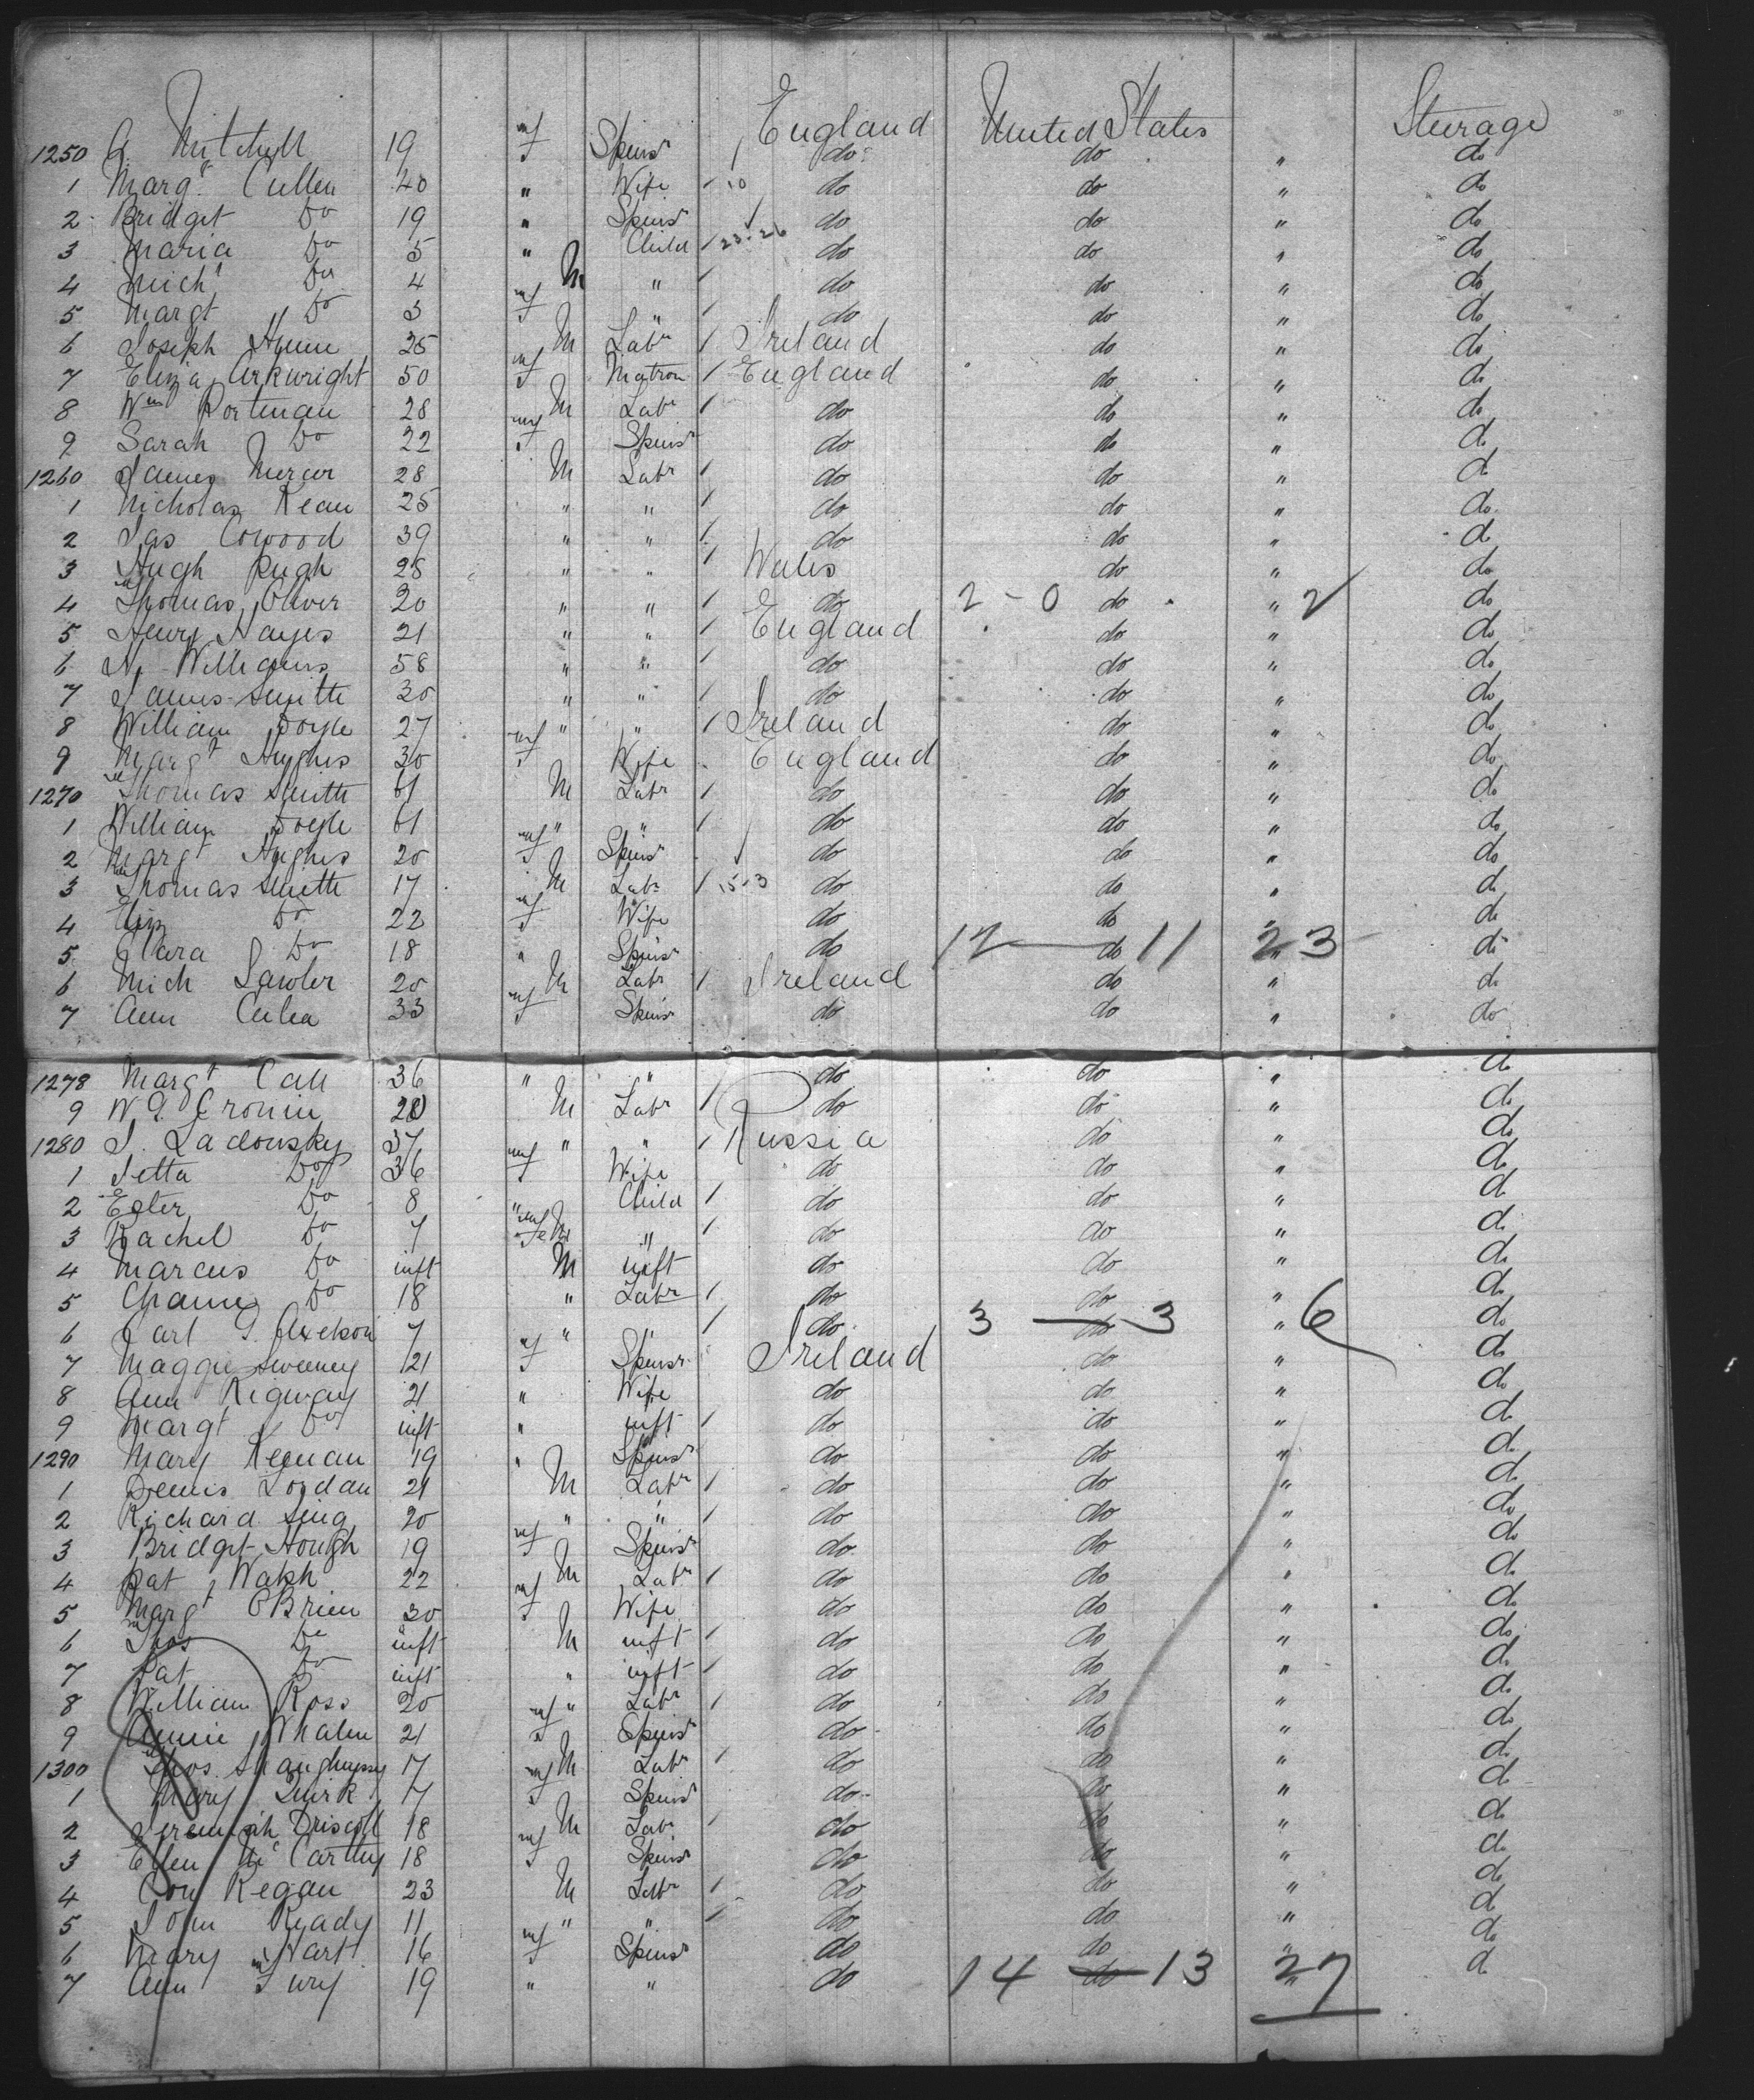 England United States Steerage
1250 G. Mitchell 19 f Spinsr / do do " do
1 Margt Cullen 40 " Wife / 10 do do " do
2 Bridget Do 19 " Spinsr do do " do
3 Maria Do 5 " Child / 23-26 do do " do
4 Mich1 Do 4 M " / do do " do
5 Margt Do 3 f " / do do " do
6 Joseph 25 M Labr / Ireland do " do
7 Eliza Arkwright 50 f Matron / England do " do
8 Wm Portman 28 M Labr / do do " do
9 Sarah Do 22 f Spinsr do do " do
1260 James Mercer 28 M Labr / do do " do
1 Nicholas Kean 25 " " / do do " do
2 Jas Cowood 39 " " / do do " do
3 Hugh Pugh 28 " " / Wales do " do
4 Thomas Oliver 20 " " / do 2 - 0 do " 2 do
5 Henry Hayes 21 " " / England do " do
6 H. Williams 58 " " / do do " do
7 James Smith 30 " " / do do " do
8 William Doyle 27 " " / Ireland do " do
9 Margt Hughes 30 f Wife England do " do
1270 Thomas Smith 61 M Labr / do do " do
1 William Doyle 61 " " / do do " do
2 Margt Hughes 20 f Spinsr do do " do
3 Thomas Smith 17 M Labr / 15-3 do do " do
4 Eliz Do 22 f Wife do do " do
5 Clara Do 18 " Spinsr do 12 — do 11 23 do
6 Mich Lawler 20 M Labr / Ireland do " do
7 Ann 33 f Spinsr do do " do
1278 Margt Call 36 " " do do " do
9 W. G. Cronin 20 M Labr / do do " do
1280 S. Ladowsky 37 " " / Russia do " do
1 Jetta Do 36 f Wife do do " do
2 Ester Do 8 " Child / do do " do
3 Rachel Do 7 " / do do " do
4 Marcus Do inft M inft do do " do
5 Do 18 " Labr / do do " do
6 Carl G. Axelson 7 " " / do 3 — do 3 " 6 do
7 Maggie Sweeney 21 f Spinsr Ireland do " do
8 Ann Rigway 21 " Wife do do " do
9 Margt Do inft " inft / do do " do
1290 Mary Keenan 19 " Spinsr do do " do
1 Dennis Lordan 21 M Labr / do do " do
2 Richard 20 " " / do do " do
3 Bridget Hough 19 f Spinsr do do " do
4 Pat Walsh 22 M Labr / do do " do
5 Margt OBrien 30 f Wife do do " do
6 Thos Do inft M inft / do do " do
7 Pat Do inft " inft / do do " do
8 William Ross 20 " Labr / do do " do
9 Annie Whalen 21 f Spinsr do do " do
1300 Thos Shaughnessy 17 M Labr / do do " do
1 Mary Quirk 17 f Spinsr do do " do
2 Jeremiah Driscoll 18 M Labr / do do " do
3 Ellen McCarthy 18 f Spinsr do do " do
4 Con Regan 23 M Labr / do do " do
5 John Ready 11 " " / do do " do
6 Mary Hart 16 f Spinsr do do " do
7 Ann Fury 19 " " do 14 — do 13 27 do